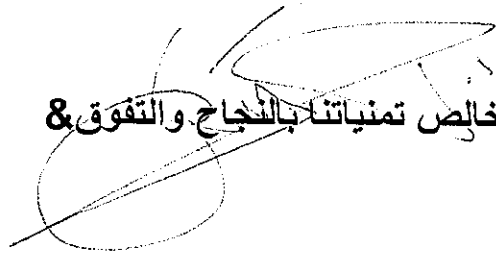 خالص تمنياتنا بالنجاح والتفوق&